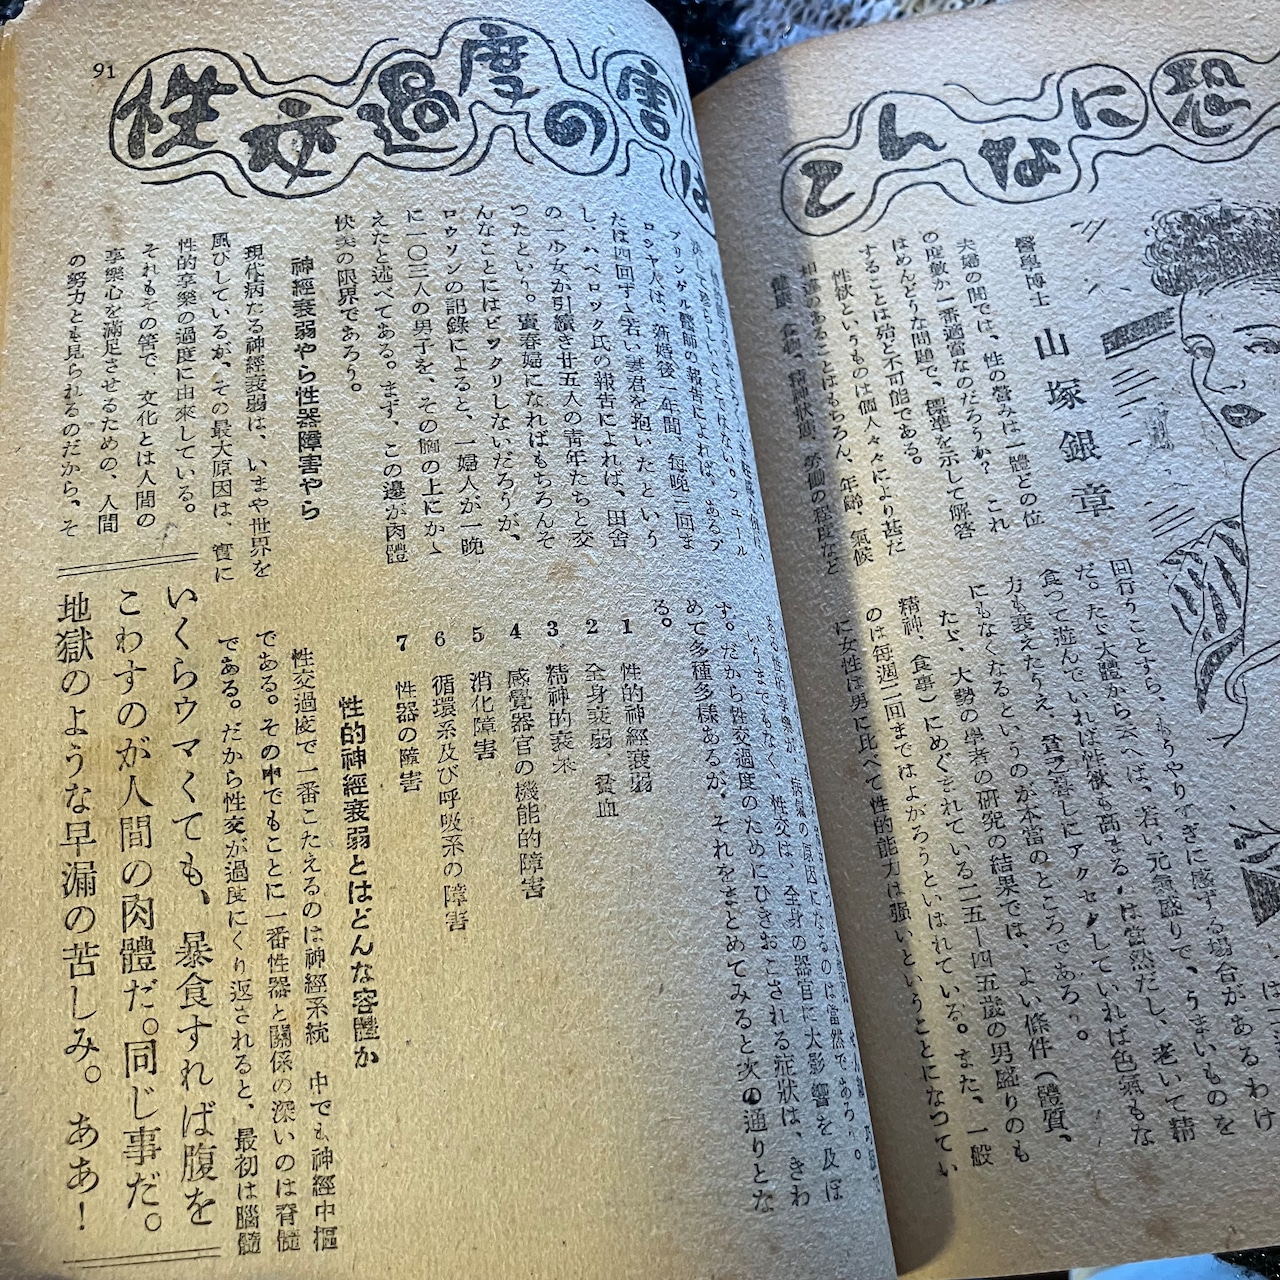 性交過度の害は
こんなに恐
醫學博士 山塚銀章
夫婦の間では、性の營みは一體どの位
の度數が一番適當なのだろうか？ これ
はめんどうな問題で、標準を示して解答
することは殆ど不可能である。
性欲というものは個人々々により甚だ
相違のあることはもちろん、年齡、氣候
回行うことすら、もうやりすぎに感ずる場合があるわけ
だ。たゞ大體からいえば、若い元氣盛りで、うまいものを
食つて遊んでいれば性欲も高まるは當然だし、老いて精
方も衰えたうえ、貧乏暮しにアクセクしていれば色氣もな
にもなくなるというのが本當のところであろう。
たゞ、大勢の學者の研究の結果では、よい條件（體質、
精神、食事）にめぐまれている二五ー四五歲の男盛りのも
のは每週二回まではよかろうといはれている。また、一般
に女性は男に比べて性的能力は强いということになつてい
91
プリンゲル醫師の報告によれば、あるブ
ロシヤ人は、新婚後一年間、每晚三回ま
たは四回ずつ若い妻君を抱いたという
し、ハベロック氏の報告によれば、田舍
の一少女が引續き廿五人の靑年たちと交
つたという。賣春婦になればもちろんそ
んなことにはビックリしないだろうが、
ロウソンの記錄によると、一婦人が一晚
に一〇三人の男子を、その胸の上にかゝ
えたと述べてある。まず、この邊が肉體
快美の限界であろう。
神經衰弱やら性器障害やら
現代病たる神經衰弱は、いまや世界を
風びしているが、その最大原因は、實に
性的享樂の過度に由來している。
それもその筈で、文化とは人間の
享樂心を滿足させるための、人間
の努力とも見られるのだから、そ
いうまでもなく、性交は、全身の器官に大影響を及ぼ
す。だから性交過度のためにひきおこされる症狀は、きわ
めて多種多樣あるが、それをまとめてみると次の通りとな
る。
1 性的神經衰弱
2 全身衰弱、貧血
3 精神的衰沫
4 感覺器官の機能的障害
5 消化障害
6 循環系及び呼吸系の障害
7 性器の障害
性的神經衰弱とはどんな容體か
性交過度で一番こたえるのは神經系統 中でも神經中樞
である。その中でもことに一番性器と關係の深いのは脊髓
である。だから性交が過度にくり返されると、最初は腦髓
いくらウマくても、暴食すれば腹を
こわすのが人間の肉體だ。同じ事だ。
地獄のような早漏の苦しみ。ああ！